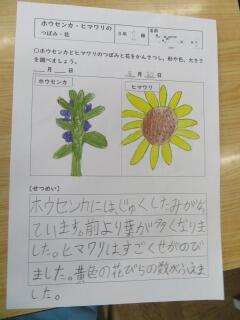 ホウセンカ・ヒマワリの
つぼみ・花
3年 組
名前
○ホウセンカとヒマワリのつぼみと花をかんさつし、形や色、大きさ
を調べましょう。
月 日
月 日
ホウセンカ
ヒマワリ
【せつめい】
ホウセンカには、じゅくしたみがなっ
ています。前より葉が多くなりま
した。ヒマワリはすごくせがのび
ました。黄色の花びらの数がふえま
した。